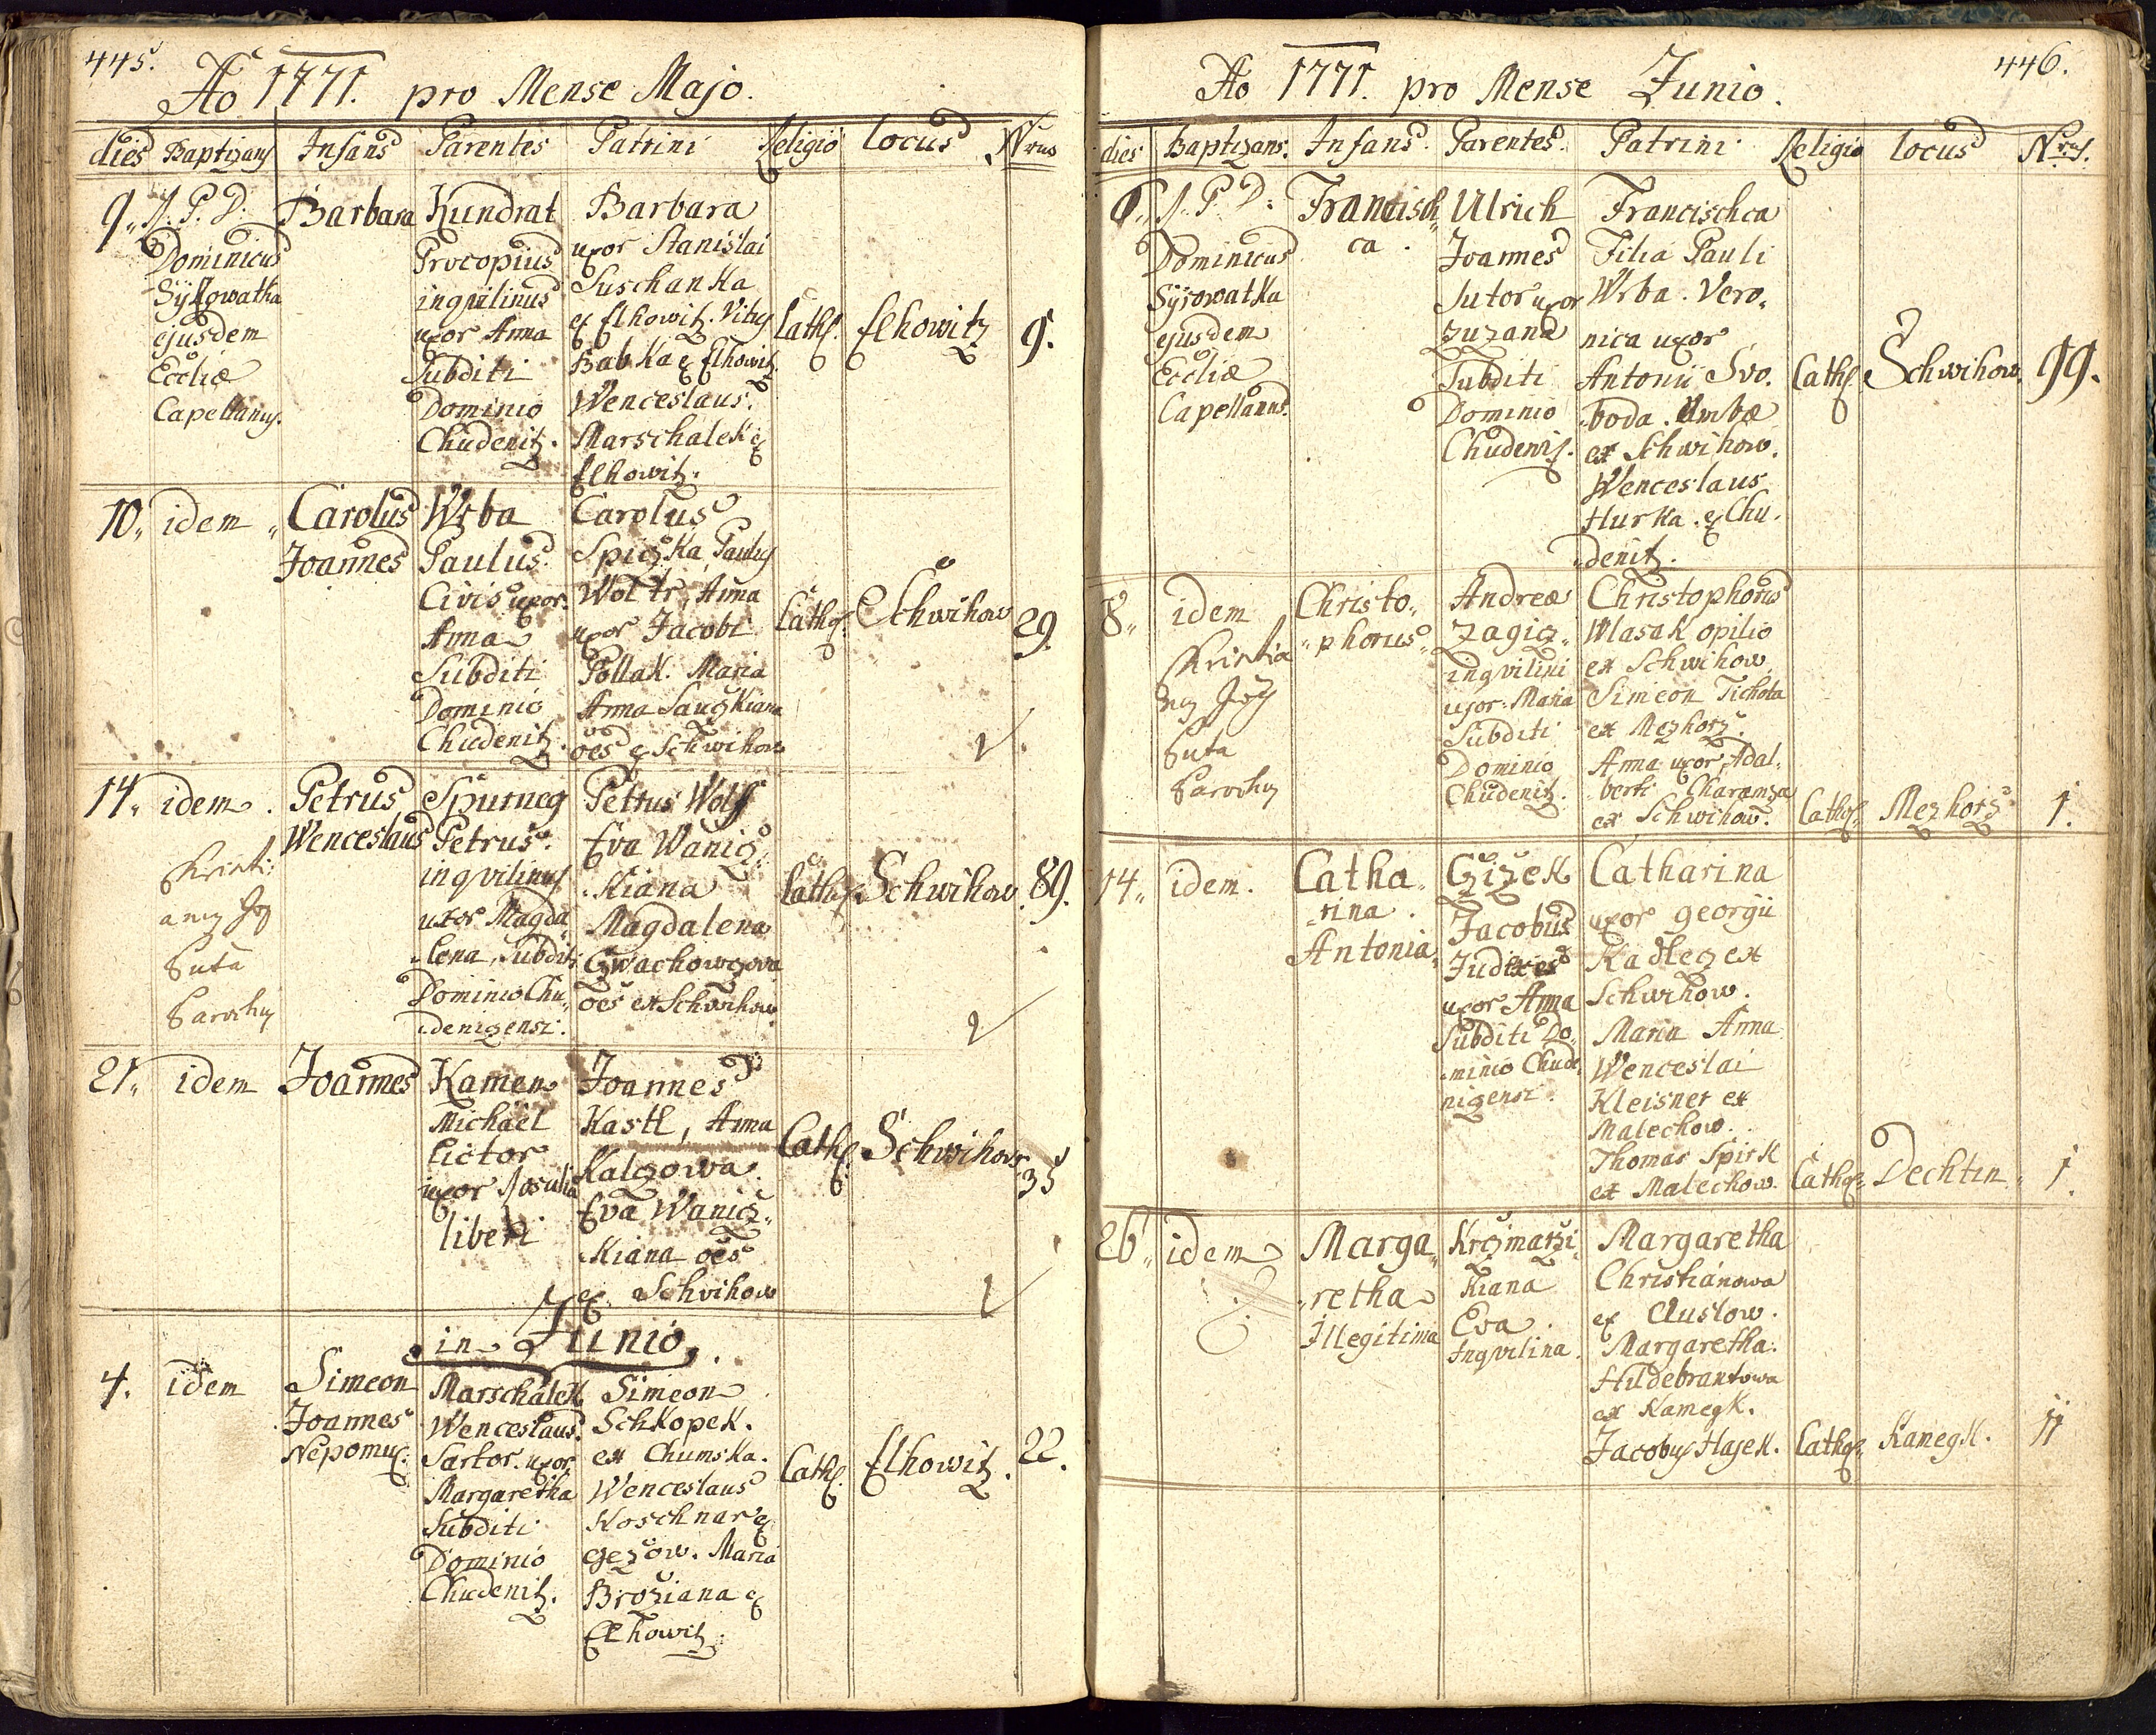 445.
Ao 1771. pro Mense Majo.
dies Baptizans Infans Parentes Patrini Religio locus Nrus
9. R. P. D.
Dominicus
Sykowatka
ejusdem
Eccliæ
Capellanus.
Barbara
Kundrat
Procopius
inquilinus
uxor Anna
Subditi
Dominio
Chudenitz.
Barbara
uxor Stanislai
Suschanka
ex Elhowitz. Vitus
Babka ex Elhowitz.
Wenceslaus
Marschalek ex
Elhowitz.
Cath. Elhowitz 9.
10. idem
Carolus
Joannes
Wrba
Paulus
Civis uxor
Anna
Subditi
Dominio
Chudenitz.
Carolus
Spiczka, Paulus
Woltr, Anna
uxor Jacobi
Pollak. Maria
Anna Sauzkiana
oēs ex Schwihow
Cath. Schwihow 29.
14. idem.
Christi
anus Jos
Suta
Parochus
Petrus
Wenceslaus
Spurneg
Petrus.
inqvilinus
uxor Magda
lena, Subditi
Dominio Chu
denizensi.
Petrus Wolf
Eva Wanicz
kiana
Magdalena
Czwachowczova
oēs ex Schwihow
Cath. Schwihow. 89.
21. idem
Joannes
Kamen
Michäel
Lictor
uxor Rosalia
liberi
Joannes
Kastl, Anna
Kalczowa
Eva Wanicz
kiana oēs
ex Schwihow
Cath. Schwihow 35
in Junio.
4. idem
Simeon
Joannes
Nepomuc.
Marschalek
Wenceslaus.
Sartor. uxor
Margaretha
Subditi
Dominio
Chudenitz.
Simeon
Schkopek.
ex Chumska.
Wenceslaus
Koschnar ex
Gezow. Maria
Broziana ex
Elhowitz.
Cath. Elhowitz. 22.
446.
Ao 1771. pro Mense Junio.
dies Baptizans. Infans. Parentes. Patrini Religio locus Nrus.
6. R. P. D.
Dominicus
Sysowatka
ejusdem
Eccliæ
Capellanus.
Francisch
ca.
Ulrich
Joannes
Sutor uxor
Zuzana
Subditi
Dominio
Chudeniz.
Francischca
Filia Pauli
Wrba. Vero
nica uxor
Antonii Svo
boda. Ambæ
ex Schwihow.
Wenceslaus
Hurka. ex Chu
denitz.
Cath. Schwihow. 99.
8. idem
Christia
nus Jos
Suta
Parochus
Christo
phorus
Andreæ
Zagicz
inqvilini
uxor Maria
Subditi
Dominio
Chudenitz.
Christophorus
Wlasak opilio
ex Schwihow
Simeon Tichota
ex Mezhorz.
Anna uxor Adal
berti Charamza
ex Schwihow.
Cath. Mezhorz 1.
14. idem.
Catha
rina.
Antonia
Czizek
Jacobus
Judices
uxor Anna
Subditi Do
minio Chude
nizensi.
Catharina
uxor Georgii
Kadlecz ex
Schwihow.
Maria Anna
Wenceslai
Kleisner ex
Malechow.
Thomas Spirk
ex Malechow.
Cath. Dechtin 1.
26. idem
Marga
retha
Illegitima
Krczmarzi
kiana
Eva.
Inqvilina.
Margaretha
Christianowa
ex Auslow.
Margaretha
Hildebrantowa
ex Kamegk.
Jacobus Hajek.
Cath. Kamegk. 11